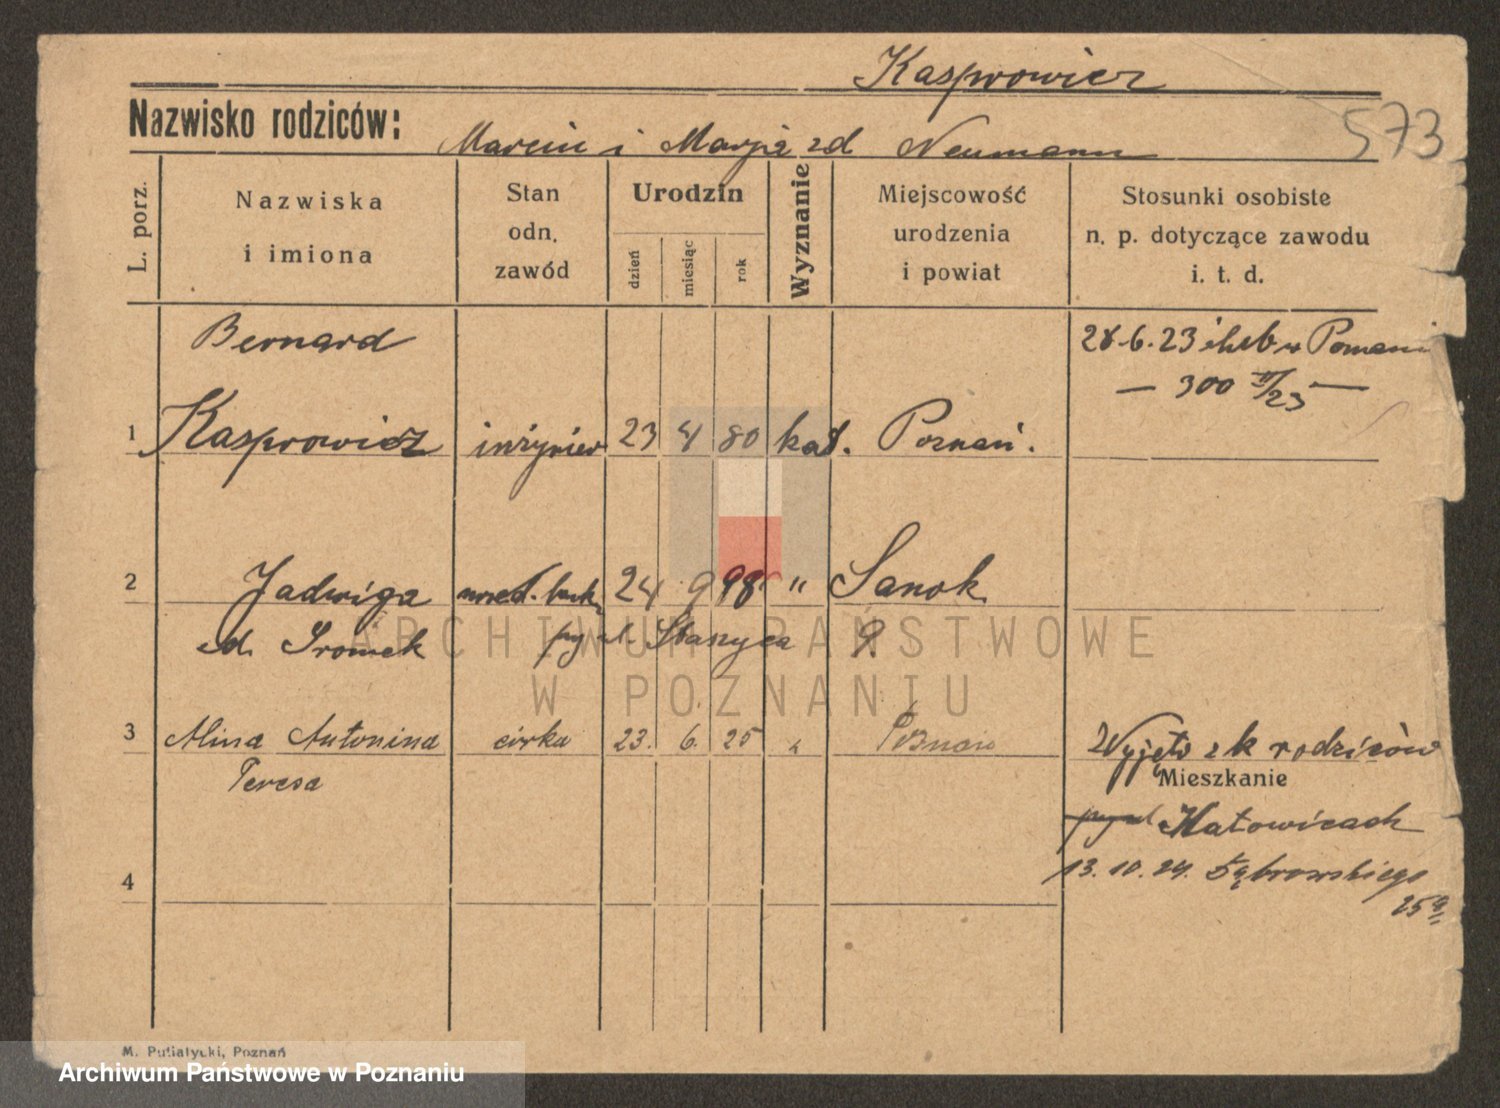 Kasprowicz
Nazwisko rodziców:
Marcin i Marja zd Neumann
573
L. porz.
Nazwiska
i imiona
Stan
odn.
zawód
Urodzin
dzień
miesiąc
rok
Wyznanie
Miejscowość
urodzenia
i powiat
Stosunki osobiste
n. p. dotyczące zawodu
i. t. d.
Bernard
28.6.23 w Poznani
— 300 /23 —
1 Kasprowicz inżynier 23 4 80 kat. Poznań.
2 Jadwiga 24 9 98 " Sanok
zd. Sromek Staszyca 9.
ARCHIWUM PAŃSTWOWE
W POZNANIU
3 Alina Antonina córka 23. 6. 25 " Poznań
Teresa
Wyjęto z k rodziców
Mieszkanie
Katowicach
13.10.24. Dąbrowskiego
25
4
M. Putiatycki, Poznań
Archiwum Państwowe w Poznaniu